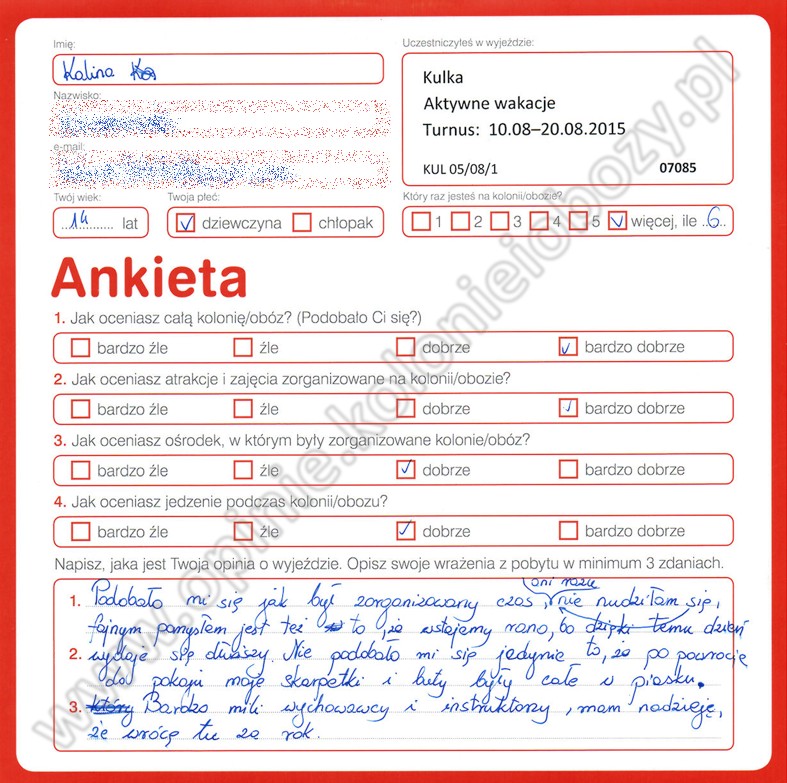 Imię:
Uczestniczyłeś w wyjeździe:
Kalina
Kulka
Aktywne wakacje
Turnus: 10.08–20.08.2015
KUL 05/08/1 07085
Nazwisko:
e-mail:
Twój wiek:
Twoja płeć:
Który raz jesteś na kolonii/obozie?
14 lat
dziewczyna chłopak
1 2 3 4 5 więcej, ile 6
Ankieta
1. Jak oceniasz całą kolonię/obóz? (Podobało Ci się?)
bardzo źle źle dobrze bardzo dobrze
2. Jak oceniasz atrakcje i zajęcia zorganizowane na kolonii/obozie?
bardzo źle źle dobrze bardzo dobrze
3. Jak oceniasz ośrodek, w którym były zorganizowane kolonie/obóz?
bardzo źle źle dobrze bardzo dobrze
4. Jak oceniasz jedzenie podczas kolonii/obozu?
bardzo źle źle dobrze bardzo dobrze
Napisz, jaka jest Twoja opinia o wyjeździe. Opisz swoje wrażenia z pobytu w minimum 3 zdaniach.
ani razu
1. Podobało mi się jak był zorganizowany czas, nie nudziłam się,
fajnym pomysłem jest też to, że wstajemy rano, bo dzięki temu dzień
2. wydaje się dłuższy. Nie podobało mi się jedynie to, że po powrocie
do pokoju moje skarpetki i buty były całe w piasku.
3. który Bardzo mili wychowawcy i instruktorzy, mam nadzieję,
że wrócę tu za rok.
www.opinie.kolonieiobozy.pl